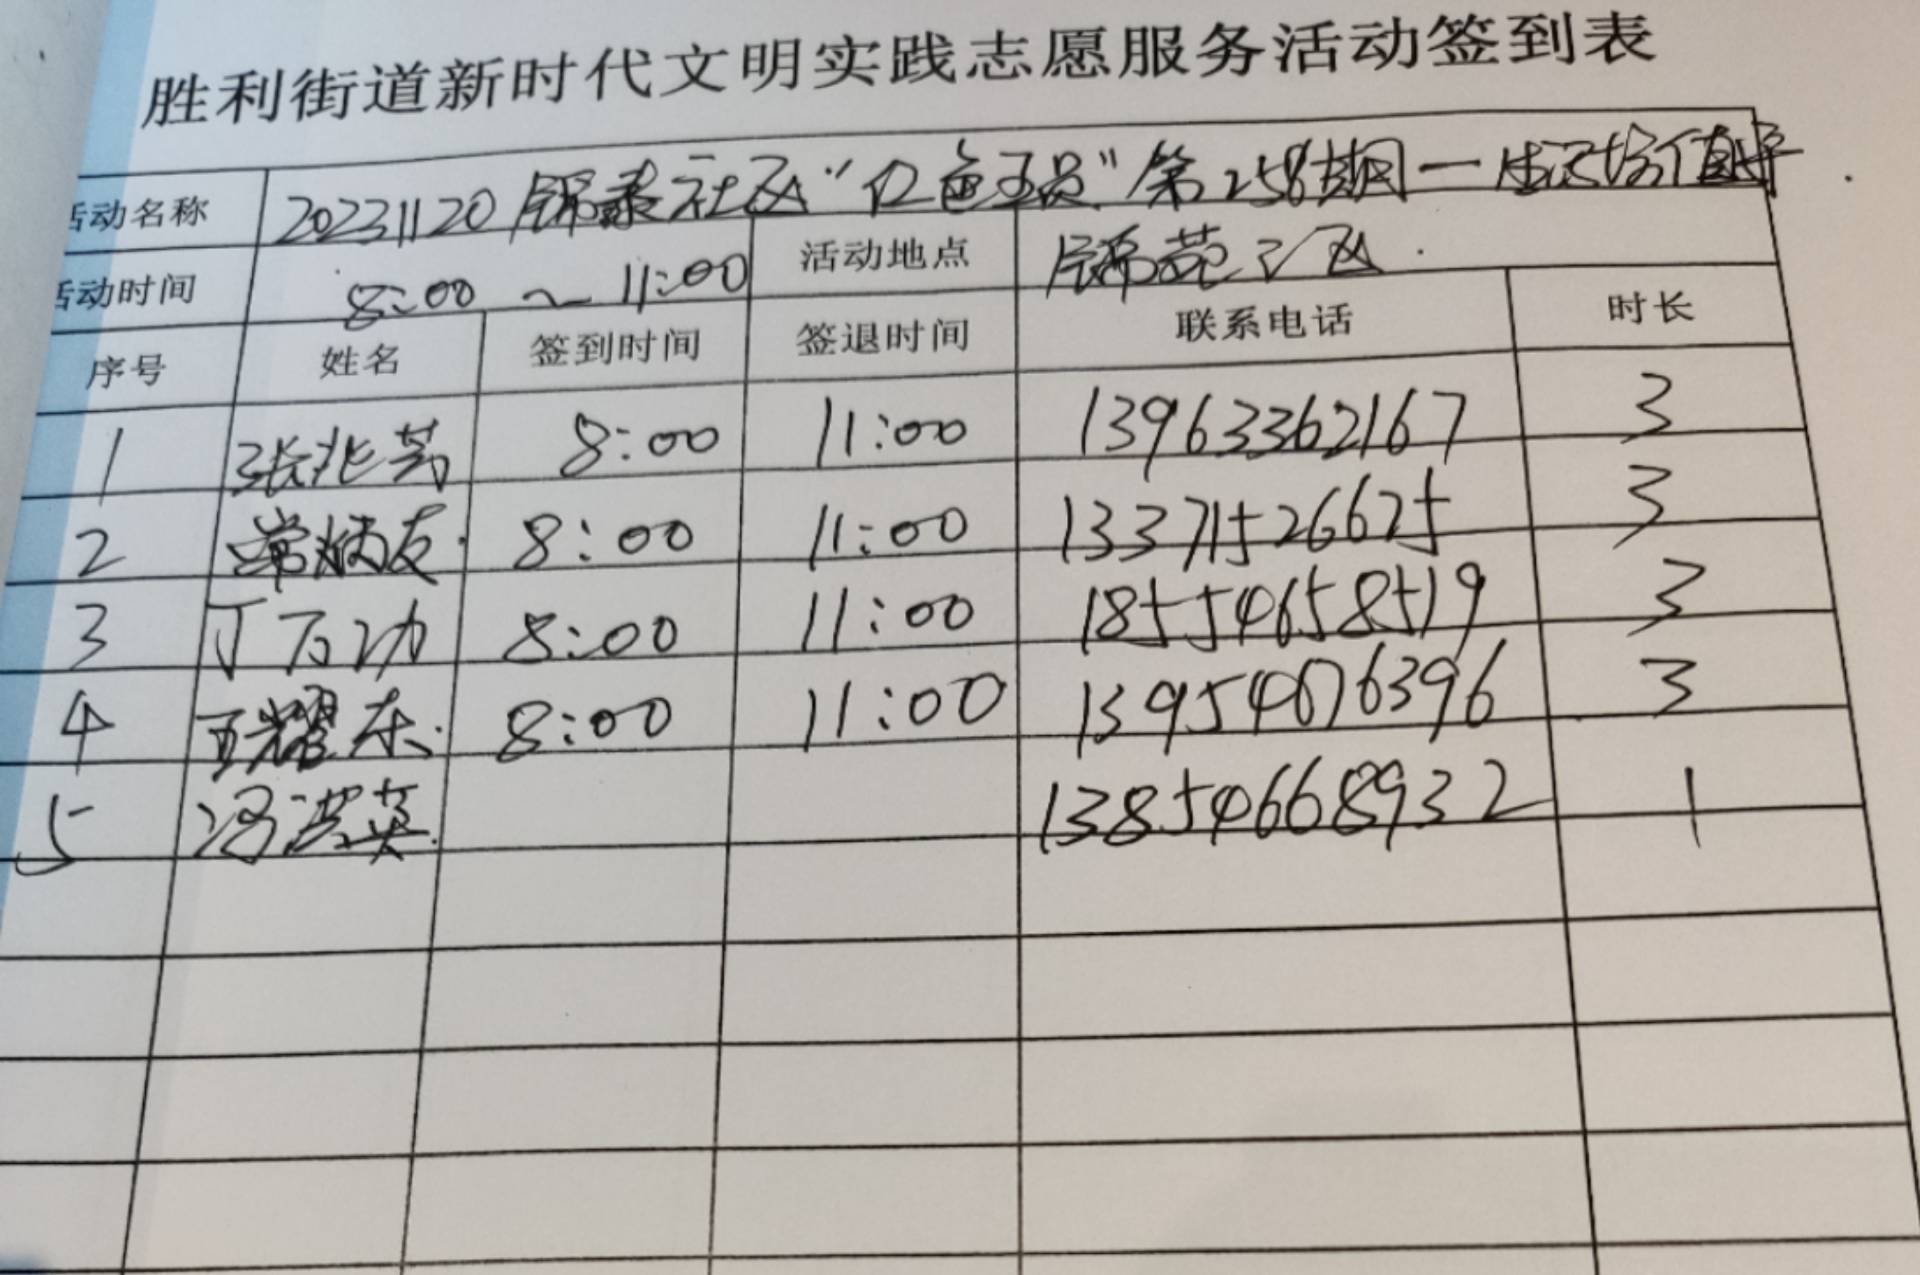 胜利街道新时代文明实践志愿服务活动签到表
活动名称 20231120 锦泰社区“红色 ”第258期一 值守
活动时间 8:00 ~ 11:00 活动地点 锦苑三区
序号 姓名 签到时间 签退时间 联系电话 时长
1 张兆芸 8:00 11:00 13963362167 3
2 常炳友 8:00 11:00 13371526625 3
3 丁万功 8:00 11:00 18554658519 3
4 王耀东 8:00 11:00 13954676396 3
5 冯洪英 13854668932 1